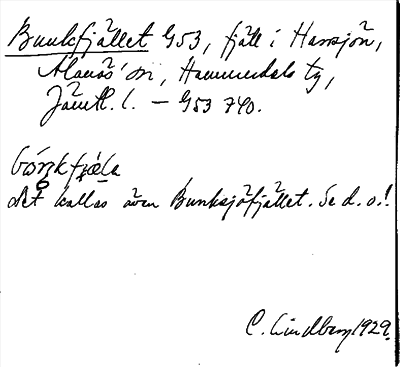 Bunkfjället G53, fjäll i Hansjön,
Alanäs sn, Hammerdals tg,
Jämtl. l. – G53 740.
Det kallas även Bunksjöfjället. Se d. o.!
C. Lindberg 1929.